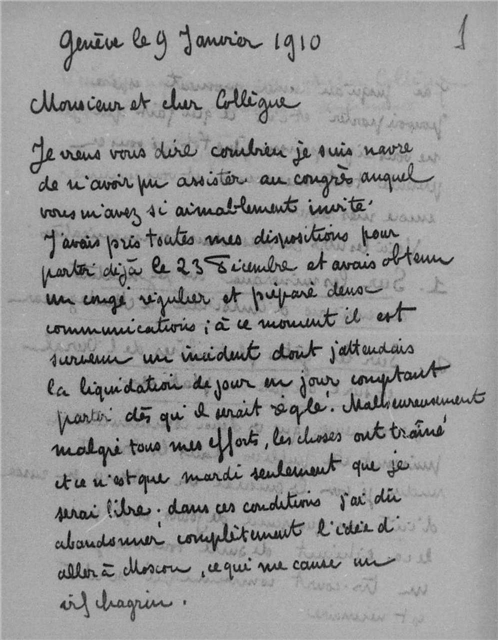 Genève le 9 Janvier 1910
1
Monsieur et cher Collègue
Je viens vous dire combien je suis navré
de n'avoir pu assister au congrès auquel
vous m'avez si aimablement invité.
J'avais pris toutes mes dispositions pour
partir déjà le 23 Décembre et avais obtenu
un congé régulier et préparé deux
communications ; à ce moment il est
survenu un incident dont j'attendais
la liquidation de jour en jour comptant
partir dès qu'il serait réglé. Malheureusement
malgré tous mes efforts, les choses ont traîné
et ce n'est que mardi seulement que je
serai libre ; dans ces conditions j'ai dû
abandonner complètement l'idée d'
aller à Moscou, ce qui me cause un
vif chagrin.